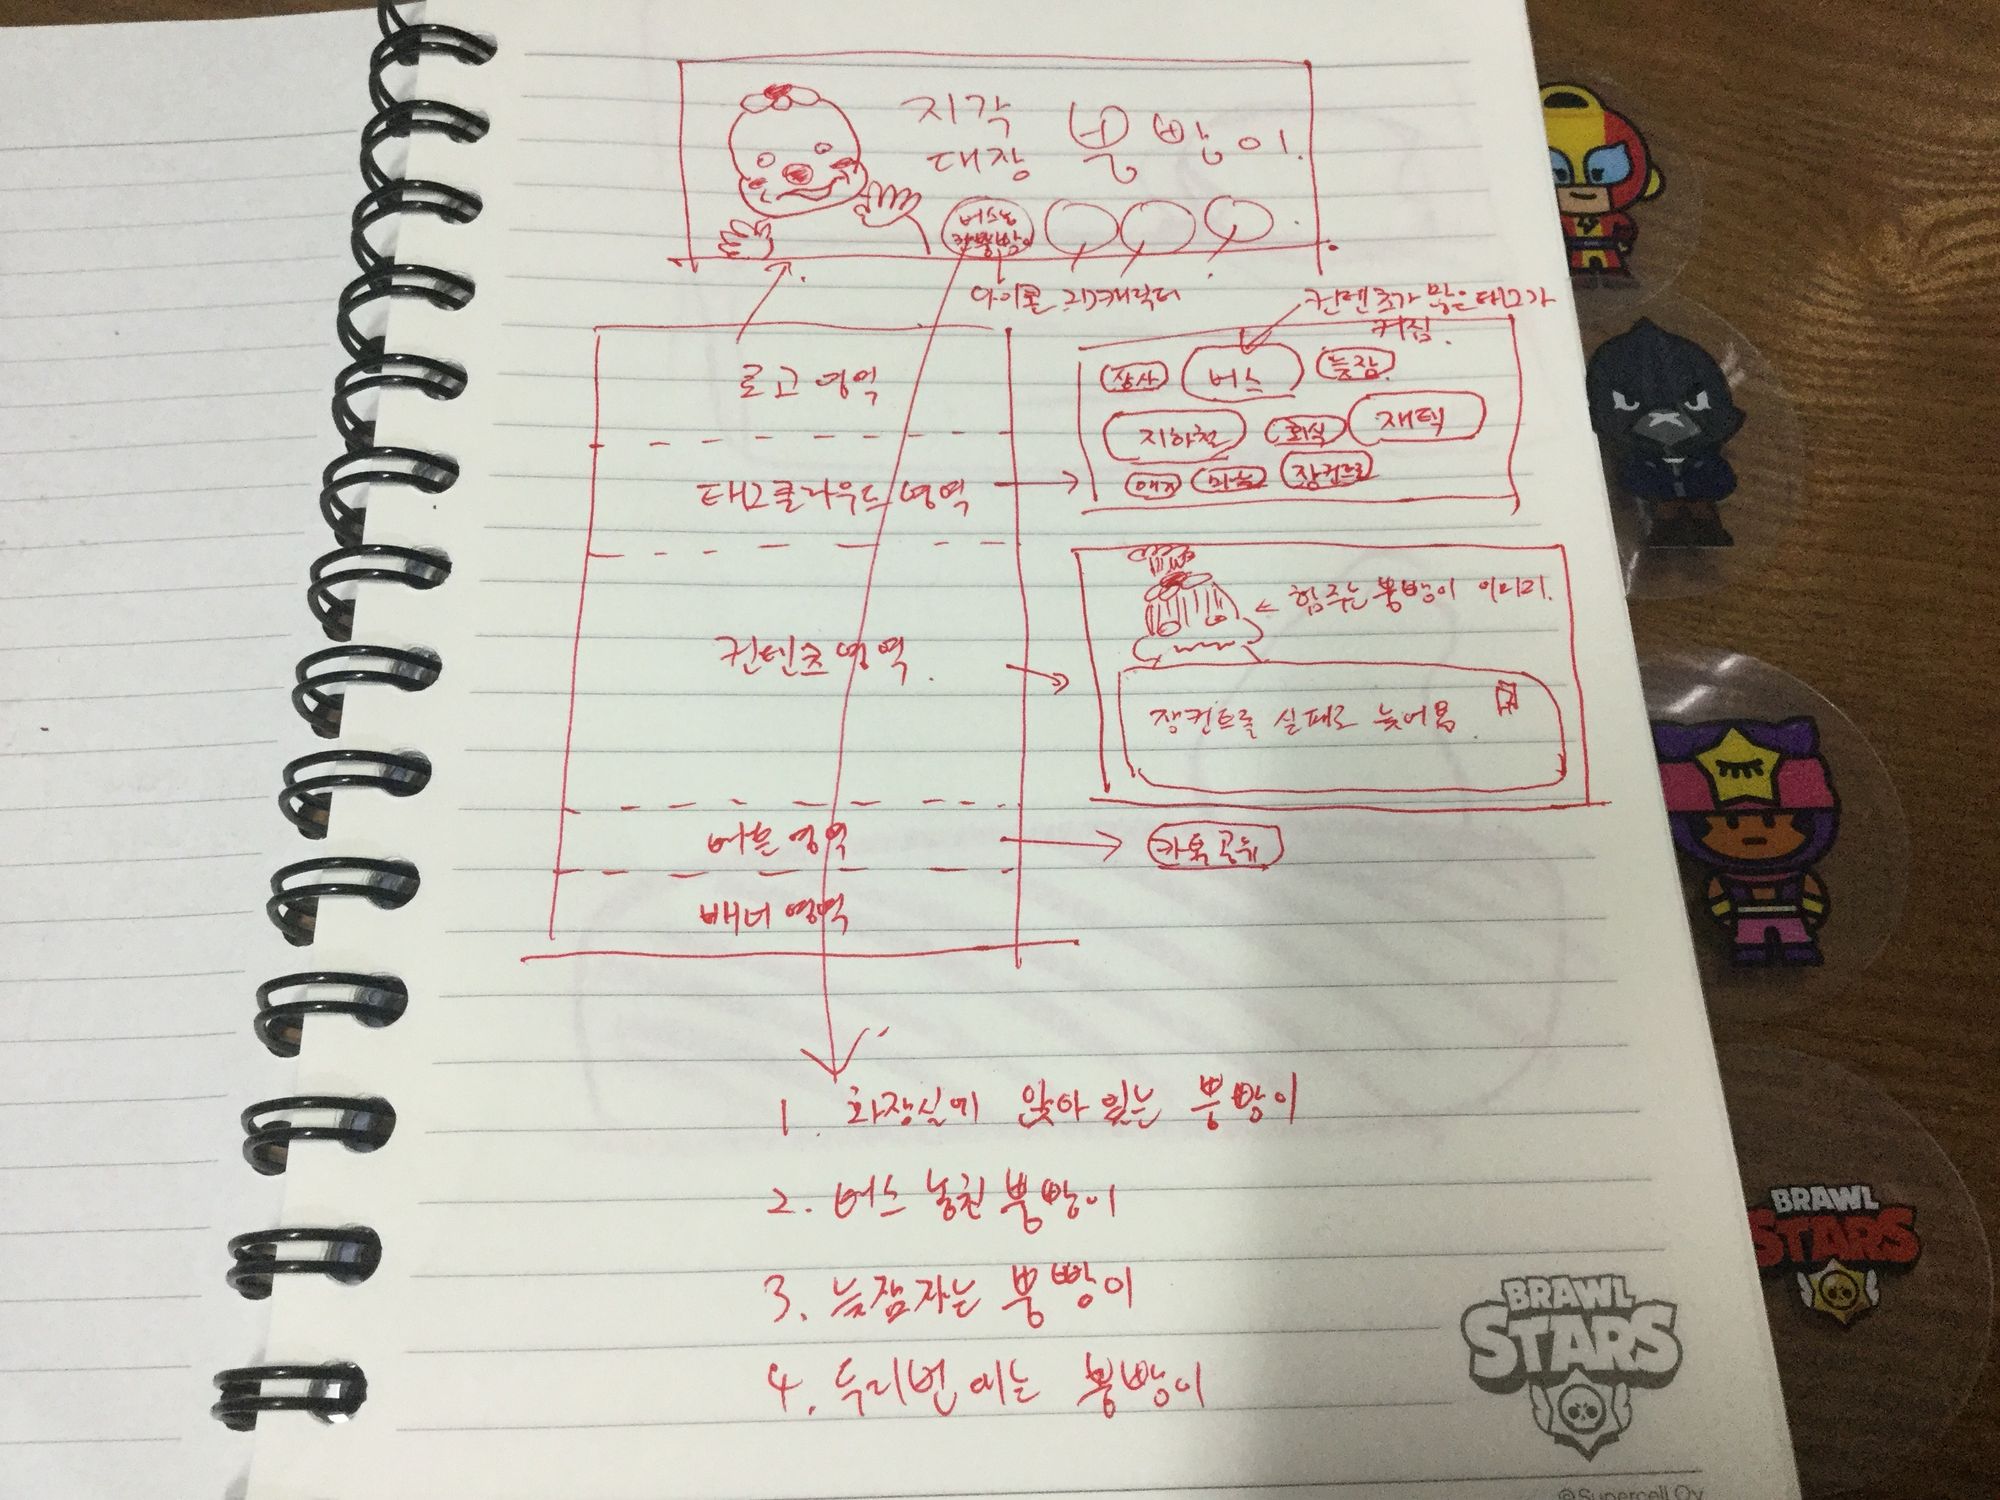 지각
대장 뿡빵이.
버스놓
친뿡빵이
아이콘
컨텐츠가 많은 태그가
커짐.
로고 영역
장사 버스 늦잠
지하철 회식 재택
장컨트롤
태그클라우드 영역
힘주는 뿡빵이 이미지.
컨텐츠 영역.
장컨트롤 실패로 늦어욤
버튼 영역
카톡공유
배너 영역
1. 화장실에 앉아 있는 뿡빵이
2. 버스 놓친 뿡빵이
3. 늦잠자는 뿡빵이
4. 두리번 에는 뿡빵이
BRAWL
STARS
BRAWL
STARS
©Supercell Oy